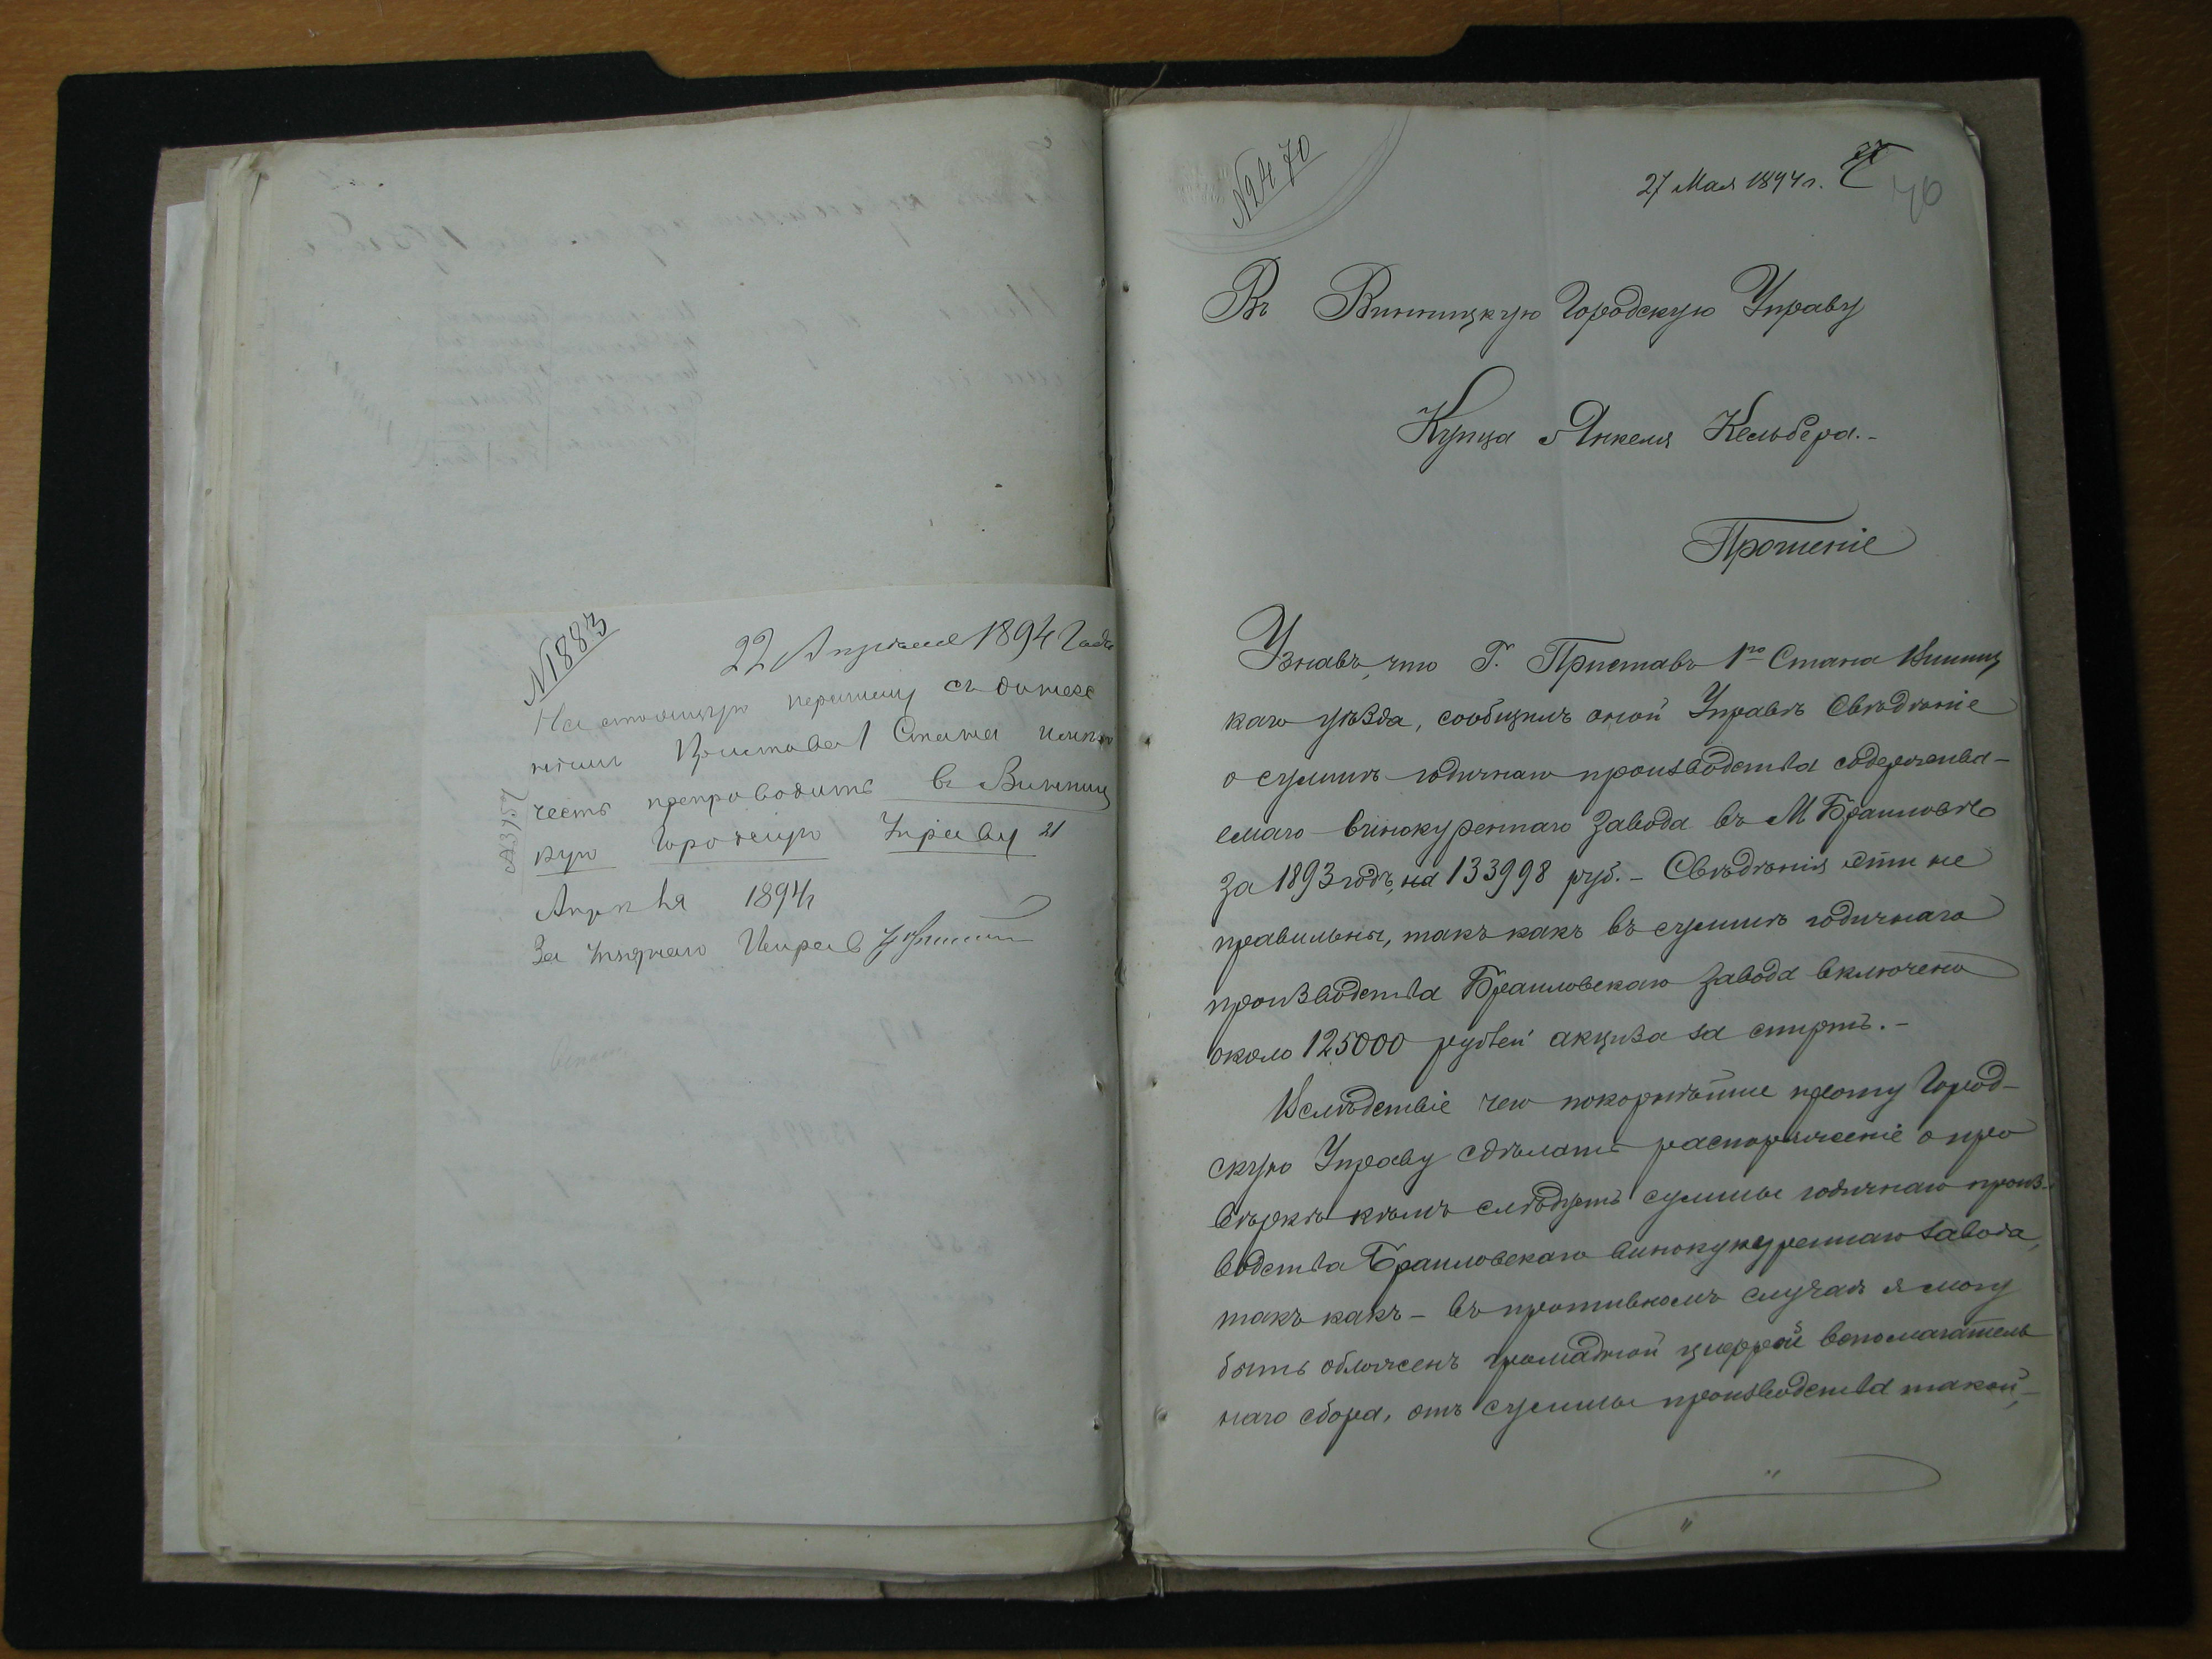 №1883
22 Апрѣля 1894 Года
Настоящую переписку съ донесе
ніемъ Пристава 1 Стана имѣю
честь препроводить въ Винниц
кую Городскую Управу 21
Апрѣля 1894 г
За Уѣзднаго Исправ
№3957
№2470
27 Мая 1894 г.
46
Въ Винницкую Городскую Управу
Купца Янкеля Кельбера.-
Прошеніе
Узнавъ, что Г. Приставъ 1го Стана Винниц
каго уѣзда, сообщилъ оной Управѣ Свѣдѣніе
о суммѣ годичнаго производства содержива-
емаго винокуреннаго завода въ М Браиловѣ
за 1893 годъ, на 133998 руб.- Свѣдѣнія эти не
правильны, такъ какъ въ суммѣ годичнаго
производства Браиловскаго завода включено
около 125000 рублей акциза за спиртъ.-
Вслѣдствіе чего покорнѣйше прошу Город-
скую Управу сдѣлать распоряженіе о про
вѣркѣ кѣмъ слѣдуетъ суммы годичнаго произ-
водства Браиловскаго винокукуреннаго завода,
такъ какъ - въ противномъ случаѣ я могу
быть обложенъ громадной цифрой вспомагатель
наго сбора, отъ суммы производства такой,-